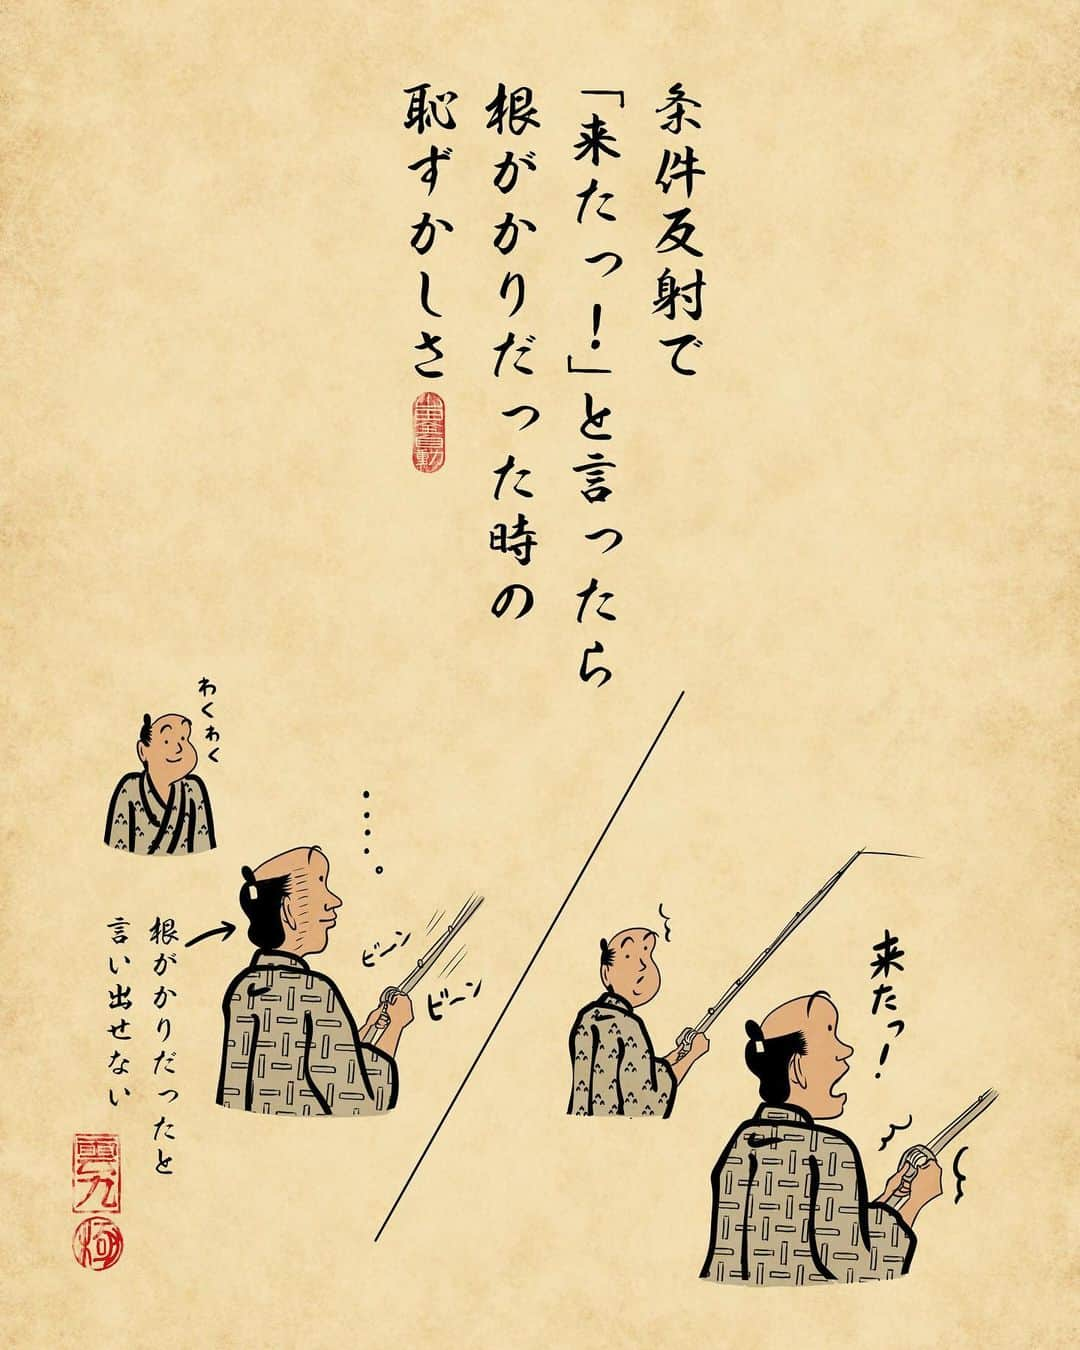 条件反射で
「来たっ!」と言ったら
根がかりだった時の
恥ずかしさ
来たっ!
わくわく
・・・・。
ビーン
ビーン
根がかりだったと
言い出せない